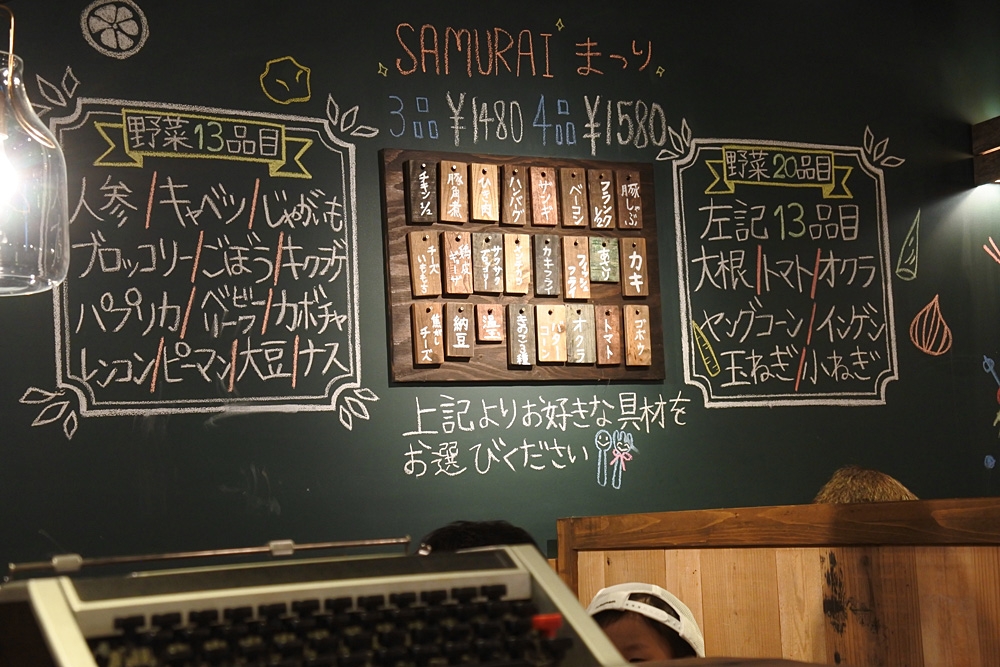 SAMURAI まつり
3品 ¥1480 4品 ¥1580
野菜13品目
人参/キャベツ/じゃがいも
ブロッコリー/ごぼう/キクラゲ
パプリカ/ベビーリーフ/カボチャ
レンコン/ピーマン/大豆/ナス
チキン1/2
豚角煮
ひき肉
ハンバーグ
ソーセージ
ベーコン
フランク1/2
豚しゃぶ
チーズいももち
カキフライ
カキ
焦がしチーズ
納豆
温玉
きのこ3種
バターコーン
オクラ
トマト
ゴボウ
上記よりお好きな具材を
お選びください
野菜20品目
左記13品目
大根/トマト/オクラ
ヤングコーン/インゲン
玉ねぎ/小ねぎ